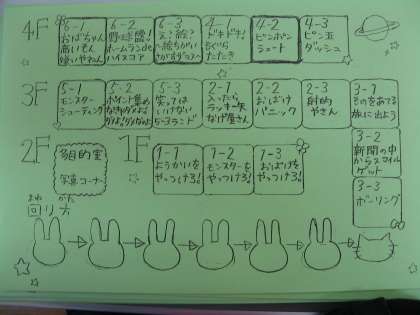 4F
6-1
おばちゃん
高いもん
嫌いやねん
6-2
野球盤!
ホームランde
ハイスコア
6-3
え?絵?
4-1
ドキドキ!
もぐら
たたき
4-2
ピンポン
シュート
4-3
ピン玉
ダッシュ
3F
5-1
モンスター
シューティング
5-2
ポイント集め
5-3
笑っては
いけない!
5-3ランド
2-1
入ったら
ラッキー 矢
なげ屋さん
2-2
おばけ
パニック
2-3
射的
やさん
3-1
ものをあてる
旅に出よう
3-2
新聞の中
からスマイル
ゲット
3-3
ボーリング
2F
多目的室
写真コーナー
1F
1-1
ようかいを
やっつけろ!
1-2
モンスターを
やっつけろ!
1-3
おばけを
やっつけろ!
まわ かた
回り方